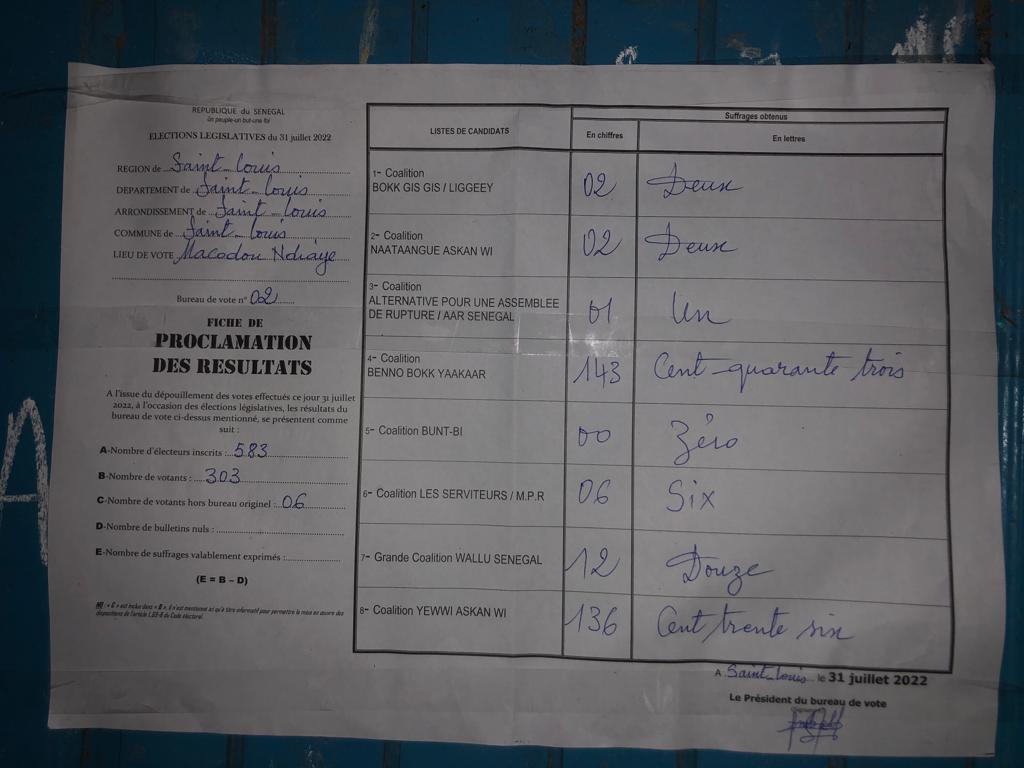 REPUBLIQUE du SENEGAL
Un peuple-un but-une foi
ELECTIONS LEGISLATIVES du 31 juillet 2022
REGION de Saint-Louis
DEPARTEMENT de Saint-Louis
ARRONDISSEMENT de Saint-Louis
COMMUNE de Saint-Louis
LIEU DE VOTE Macodou Ndiaye
Bureau de vote n° 02
FICHE DE
PROCLAMATION
DES RESULTATS
A l'issue du dépouillement des votes effectués ce jour 31 juillet
2022, à l'occasion des élections législatives, les résultats du
bureau de vote ci-dessus mentionné, se présentent comme
suit :
A-Nombre d'électeurs inscrits : 583
B-Nombre de votants : 303
C-Nombre de votants hors bureau originel : 06
D-Nombre de bulletins nuls :
E-Nombre de suffrages valablement exprimés :
(E = B – D)
NB : « C » est inclus dans « B », il n'est mentionné ici qu'à titre informatif pour permettre la mise en œuvre des
dispositions de l'article L.69-6 du Code électoral.
LISTES DE CANDIDATS
Suffrages obtenus
En chiffres
En lettres
1- Coalition
BOKK GIS GIS / LIGGEEY
02
Deux
2- Coalition
NAATAANGUE ASKAN WI
02
Deux
3- Coalition
ALTERNATIVE POUR UNE ASSEMBLEE
DE RUPTURE / AAR SENEGAL
01
Un
4- Coalition
BENNO BOKK YAAKAAR
143
Cent-quarante trois
5- Coalition BUNT-BI
00
Zéro
6- Coalition LES SERVITEURS / M.P.R
06
Six
7- Grande Coalition WALLU SENEGAL
12
Douze
8- Coalition YEWWI ASKAN WI
136
Cent trente six
A Saint-Louis le 31 juillet 2022
Le Président du bureau de vote
A